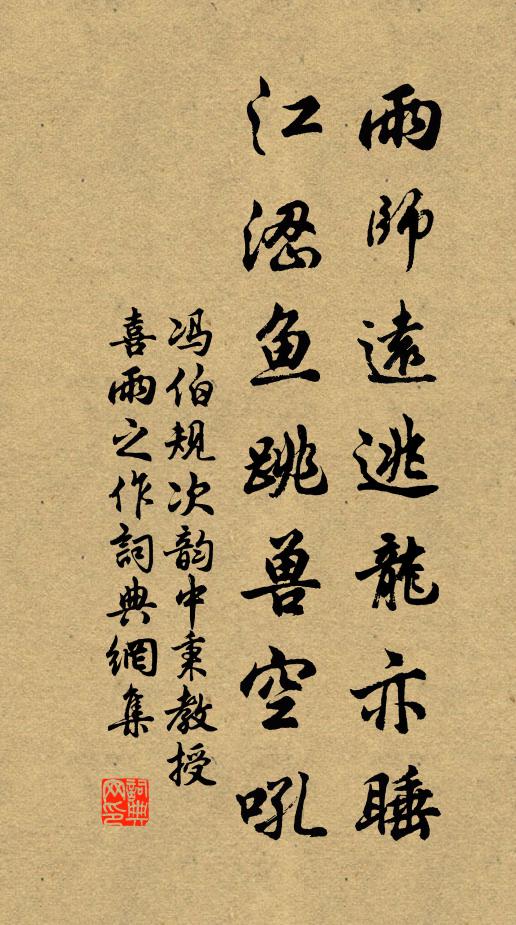 雨師遠逃龍亦睡
江涊鱼跳兽空吼
冯伯规次韵中秉教授
喜雨之作詞典網集
詞典网印